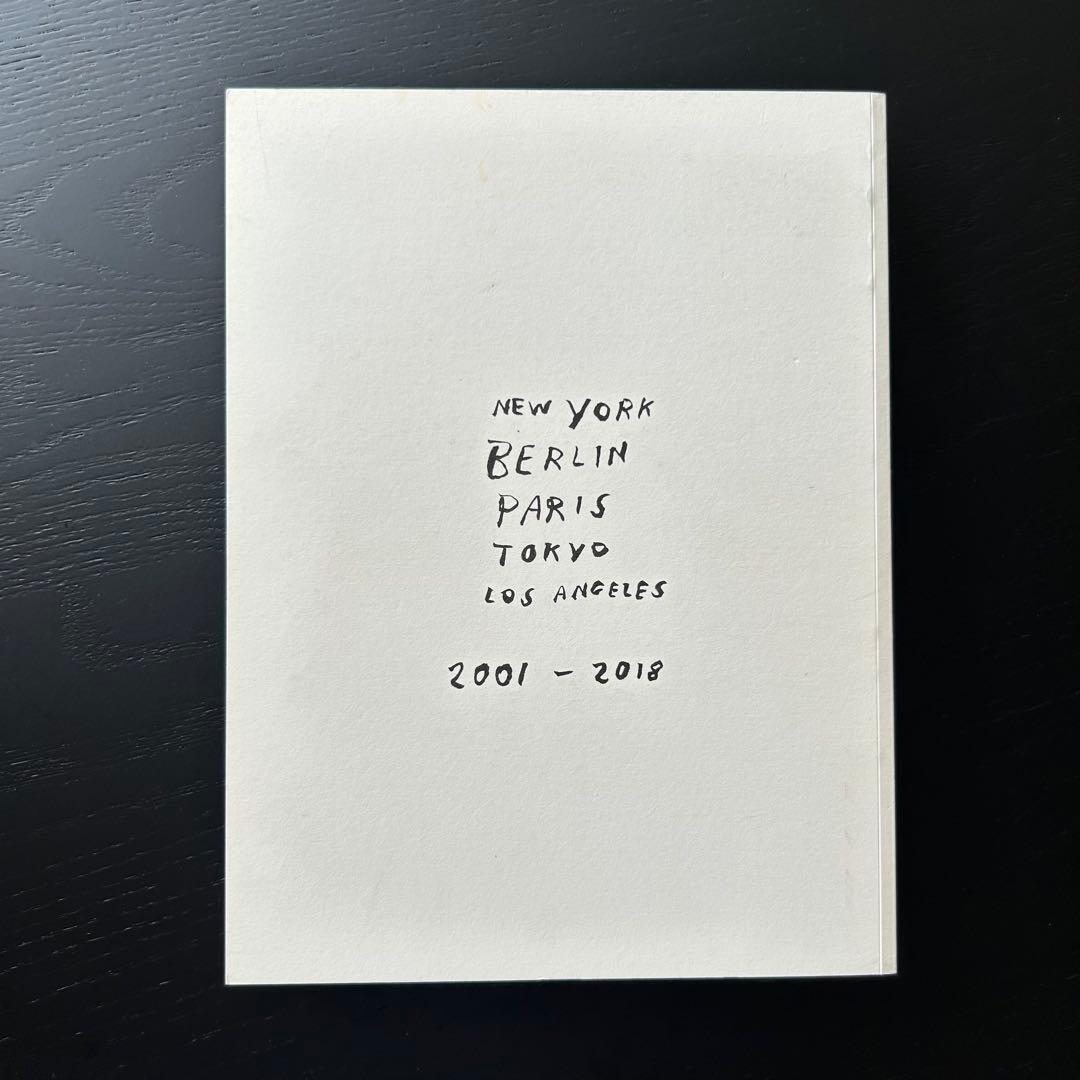 NEW YORK
BERLIN
PARIS
TOKYO
LOS ANGELES
2001 - 2018